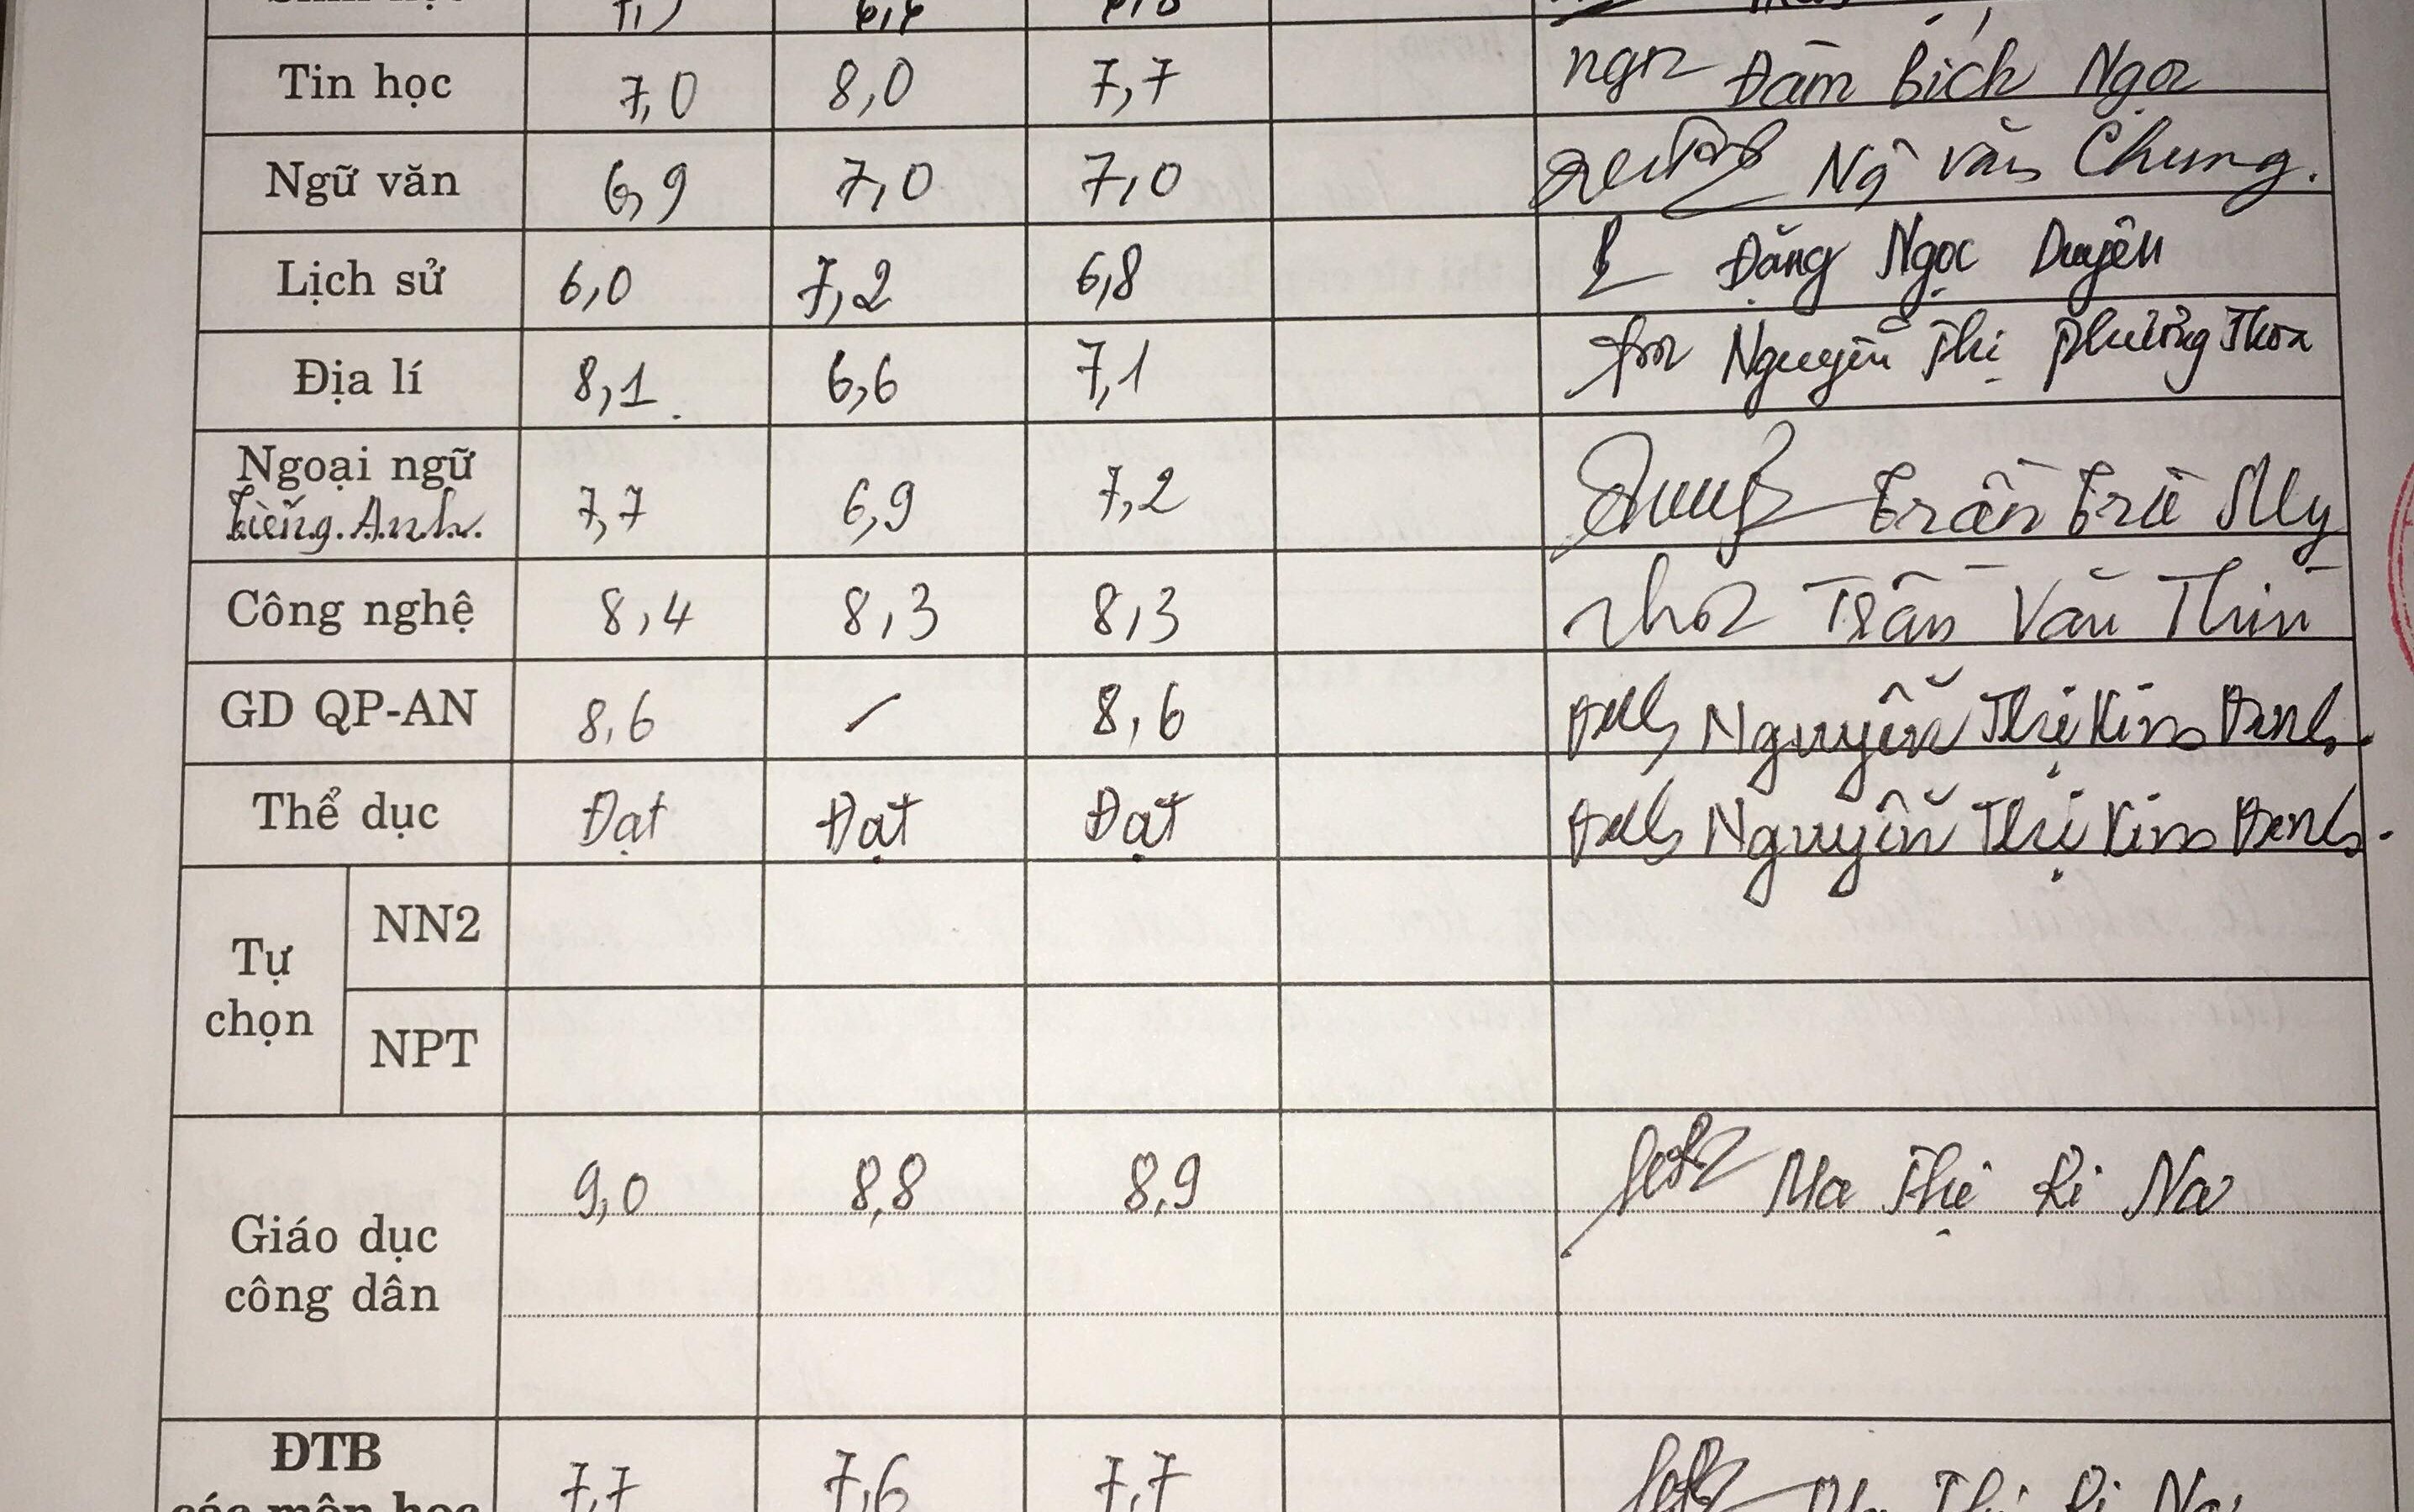 Tin học 7,0 8,0 7,7 Đàm Bích Ngọc
Ngữ văn 6,9 7,0 7,0 Ngô Văn Chung.
Lịch sử 6,0 7,2 6,8 Đặng Ngọc Duyên
Địa lí 8,1 6,6 7,1 Nguyễn Thị Phương Thoa
Ngoại ngữ
Tiếng Anh 7,7 6,9 7,2 Trần Trà My
Công nghệ 8,4 8,3 8,3 Trần Văn Thìn
GD QP-AN 8,6 / 8,6 Nguyễn Thị Kim
Thể dục Đạt Đạt Đạt Nguyễn Thị Kim
Tự chọn
NN2
NPT
Giáo dục công dân 9,0 8,8 8,9 Ma Thị Ri Na
ĐTB
các môn học 7,7 7,6 7,7 Ma Thị Ri Na